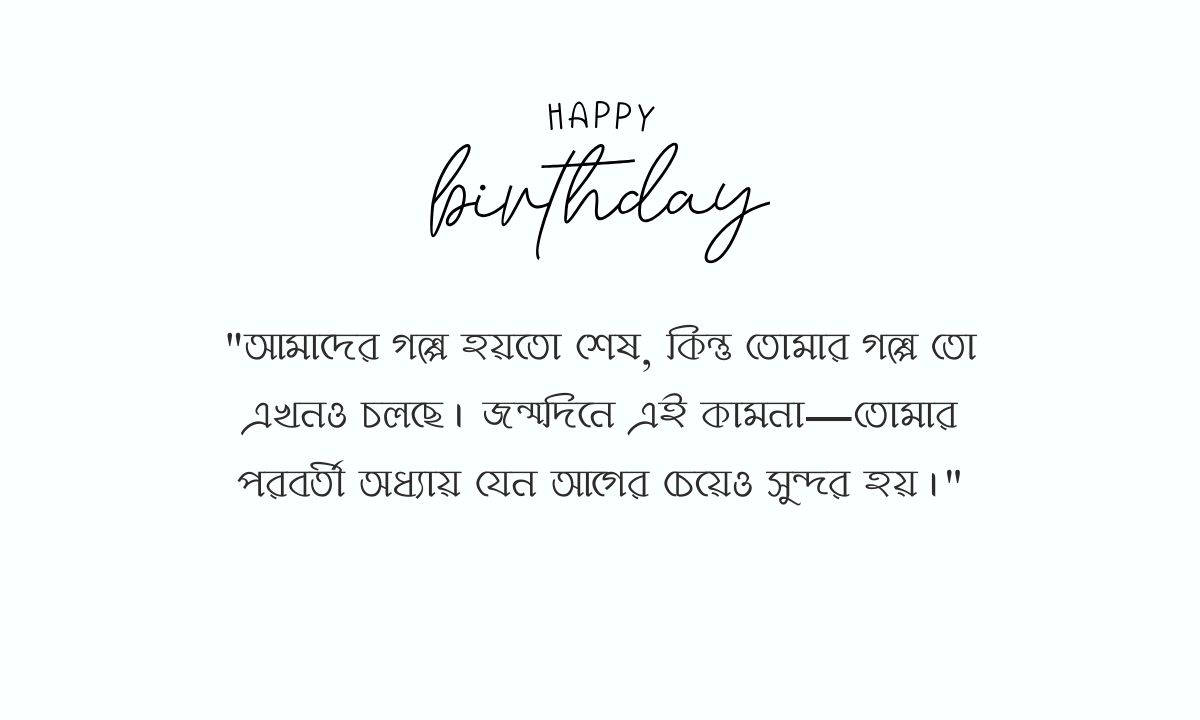 HAPPY
birthday
"আমাদের গল্প হয়তো শেষ, কিন্তু তোমার গল্প তো
এখনও চলছে। জন্মদিনে এই কামনা—তোমার
পরবর্তী অধ্যায় যেন আগের চেয়েও সুন্দর হয়।"